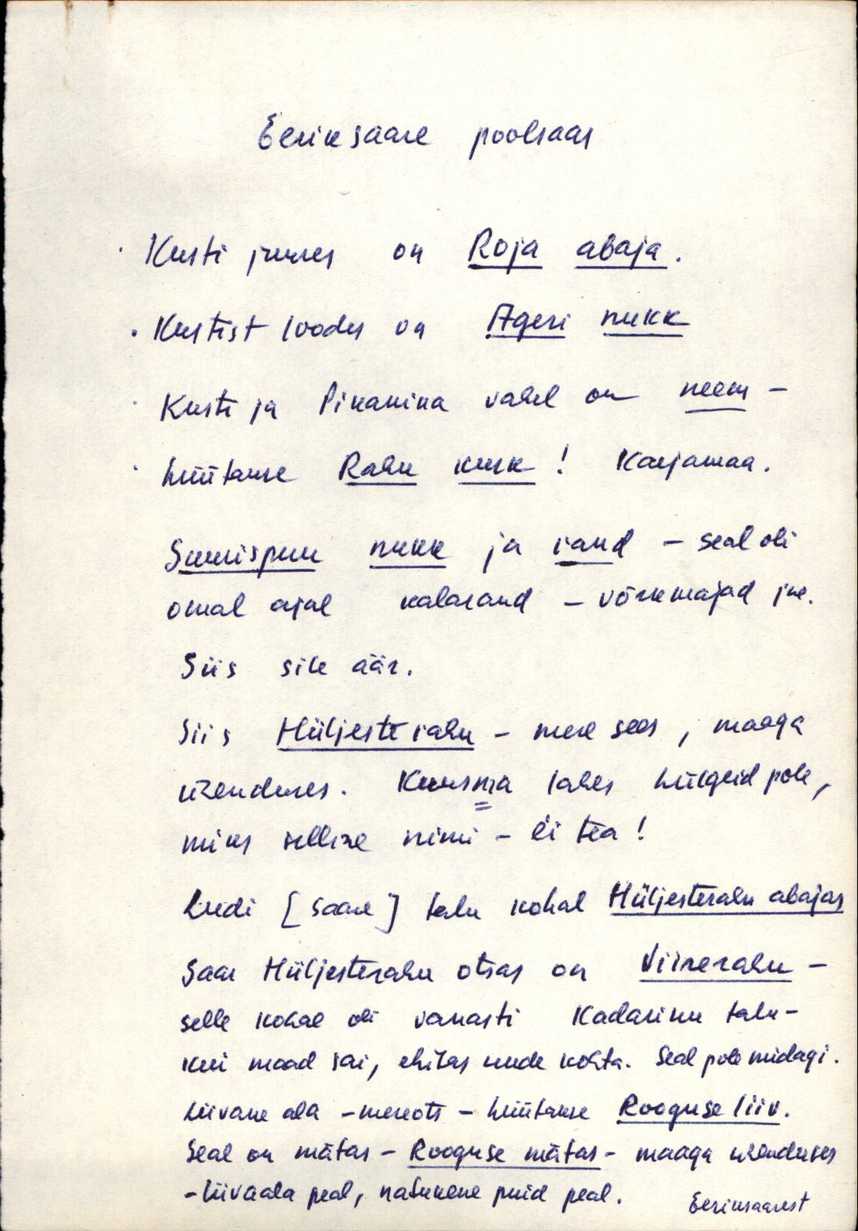 Eeriksaare poolsaar
Kusti juures on Roja abaja.
Kustist loodes on Ageri nukk
Kusti ja Pikanina vahel on neem –
hüütakse Rahu kurk! Karjamaa.
Suurispuu nukk ja rand – seal oli
omal ajal kalarand – võrkmajad jne.
Siis sile äär.
Siis Hüljesterahu – mere sees, maaga
ühenduses. Kuusnna lahes hülgeid pole,
miks selline nimi – ei tea!
Ludi [Saare] talu kohal Hüljesterahu abajas
Saar Hüljesterahu otsas on Viirerahu –
selle kohal oli vanasti Kadariku talu –
kui maad sai, ehitas uude kohta. Seal pole midagi.
Liivane ala – mereots – hüütakse Rooguse liiv.
Seal on mätas – Rooguse mätas – maaga ühenduses
– liivaala peal, natukene puid peal.
Eeriksaarest